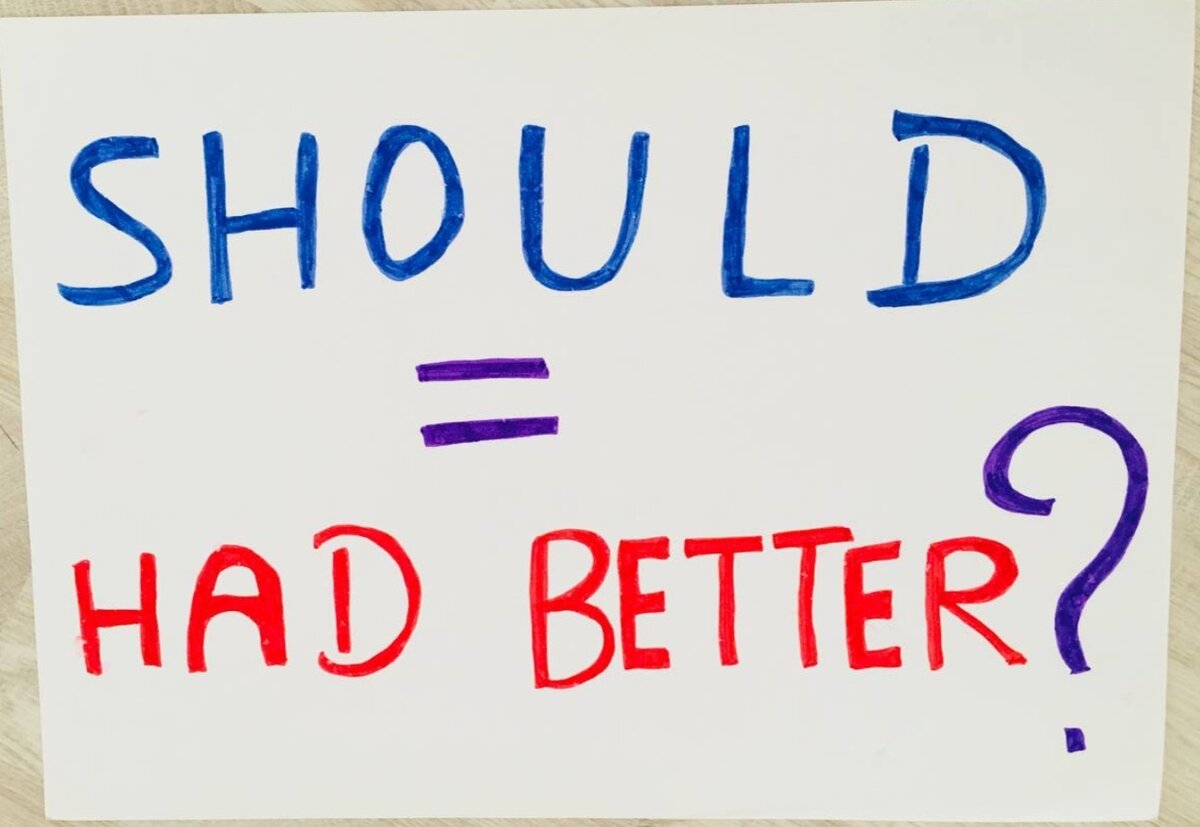 SHOULD
=
HAD BETTER?